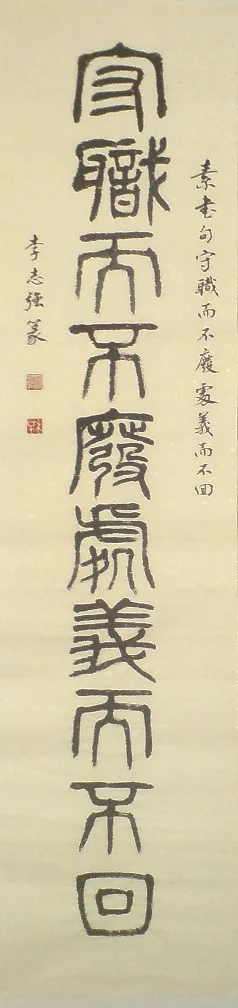 素書句守職而不廢處義而不回
守職而不廢處義而不回
李志強篆